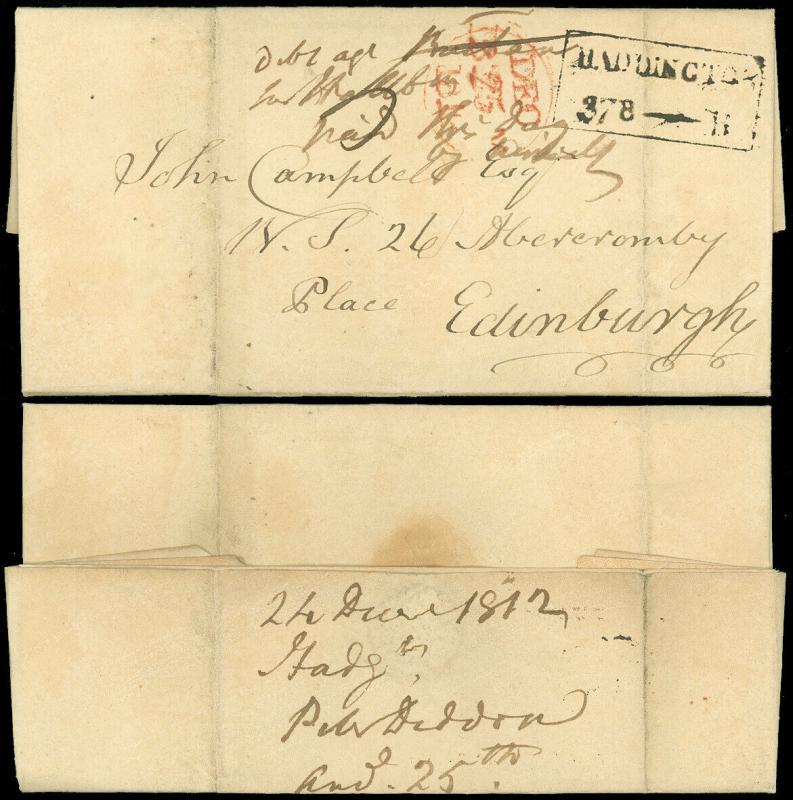 Debt agt
paid this day
HADDINGTON
378 B
DEC
John Campbell Esq
W. S. 26 Abercromby
Place Edinburgh
24 Decr 1812
Hadgtn
Peter Heddon
and. 25th.